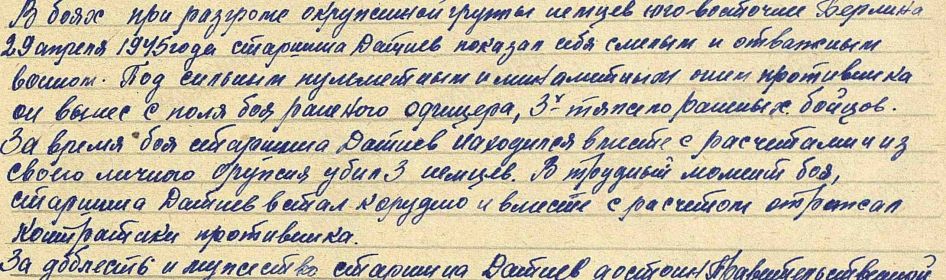 В боях при разгроме окруженной группы немцев юго-восточнее Берлина
29 апреля 1945 года старшина Датиев показал себя смелым и отважным
воином. Под сильным пулеметным и минаметным огнем противника
он вынес с поля боя раненого офицера, 3х тяжело раненых бойцов.
За время боя старшина Датиев находился вместе с расчетами и из
своего личного оружия убил 3 немцев. В трудный момент боя,
старшина Датиев встал к орудию и вместе с расчетом отражал
контратаки противника.
За доблесть и мужество старшина Датиев достоин Правительственной